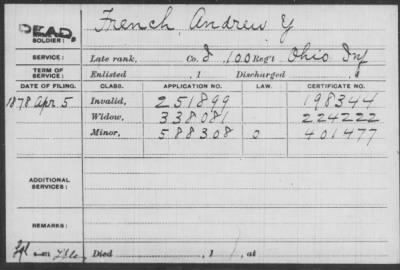 French, Andrew Y
DEAD.
SOLDIER:
SERVICE: Late rank, Co. I, 100 Reg't Ohio Inf
TERM OF SERVICE: Enlisted , 1 Discharged , 1
DATE OF FILING. CLASS. APPLICATION NO. LAW. CERTIFICATE NO.
1878 Apr. 5 Invalid, 251899 198344
Widow, 338081 224222
Minor, 588308 0 401477
ADDITIONAL SERVICES:
REMARKS:
Died , 1 , at